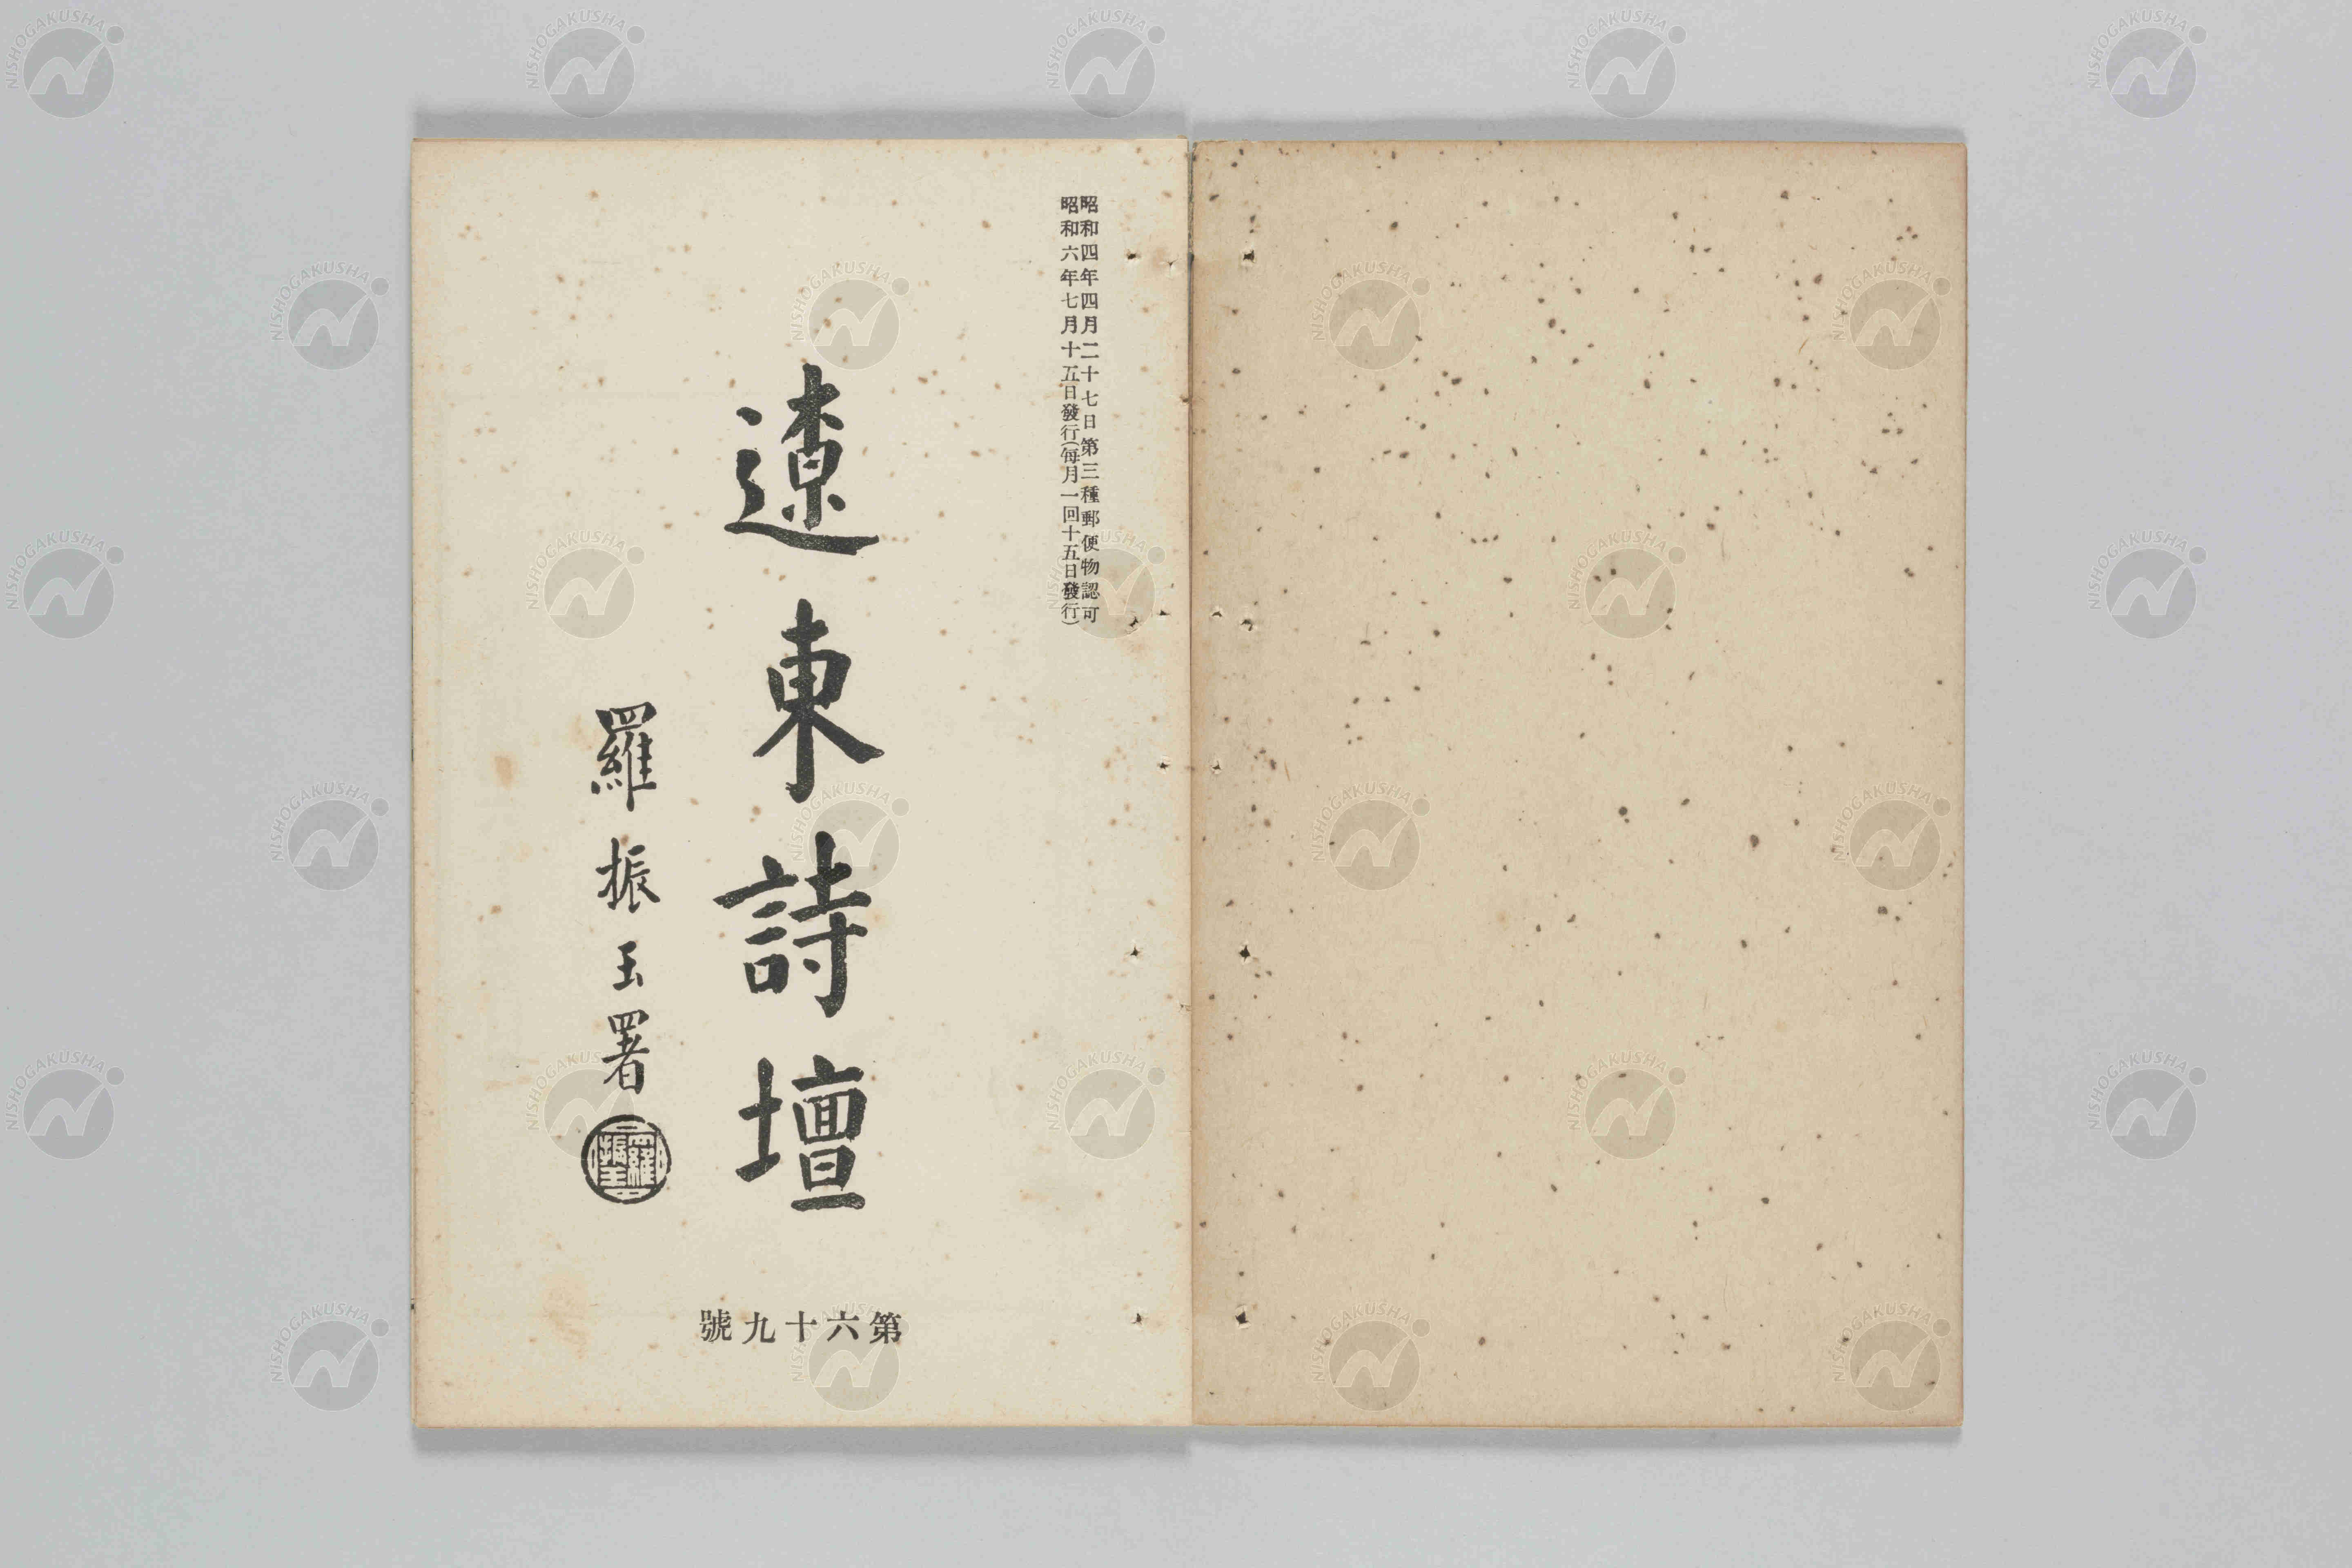 昭和四年四月二十七日第三種郵便物認可
昭和六年七月十五日發行(每月一回十五日發行)
遼東詩壇
羅振玉署
羅振玉
第六十九號
NISHOGAKUSHA